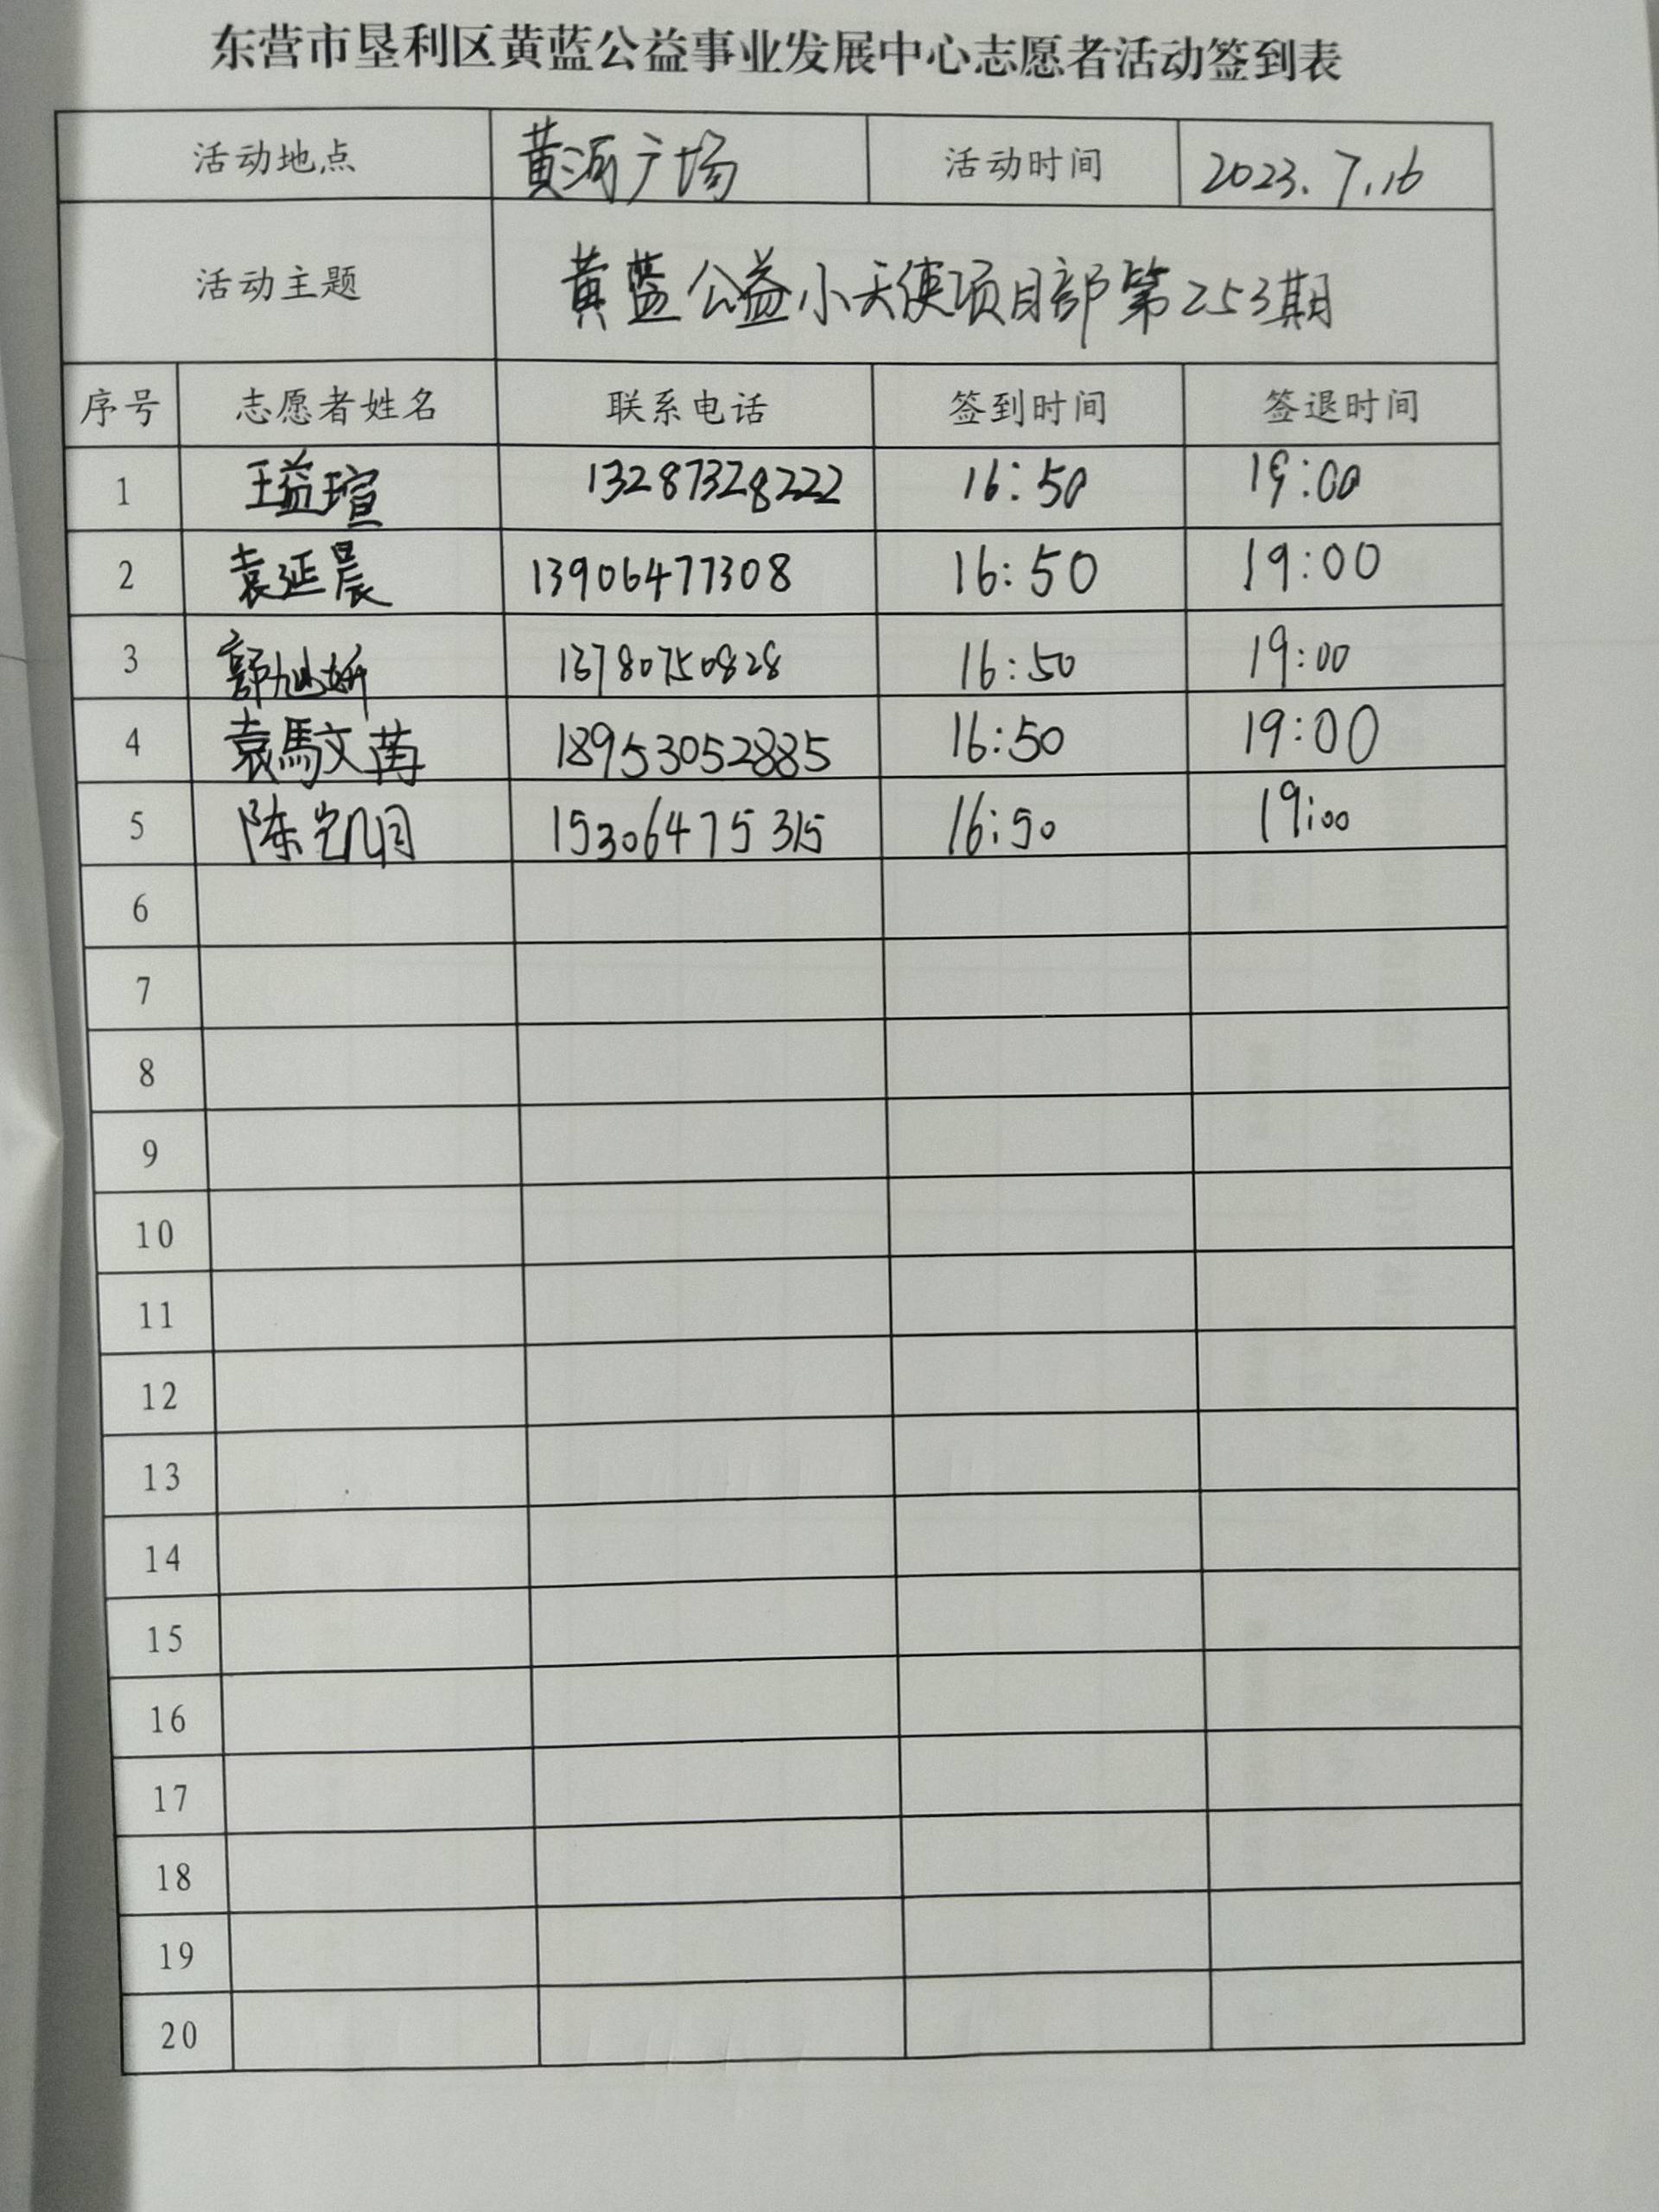 东营市垦利区黄蓝公益事业发展中心志愿者活动签到表
活动地点 黄河广场 活动时间 2023.7.16
活动主题 黄蓝公益小天使项目部第253期
序号 志愿者姓名 联系电话 签到时间 签退时间
1 王益瑄 13287328222 16:50 19:00
2 袁延晨 13906477308 16:50 19:00
3 郭旭妍 13780750828 16:50 19:00
4 袁馭文苒 18953052885 16:50 19:00
5 陈凯月 15306475315 16:50 19:00
6
7
8
9
10
11
12
13
14
15
16
17
18
19
20